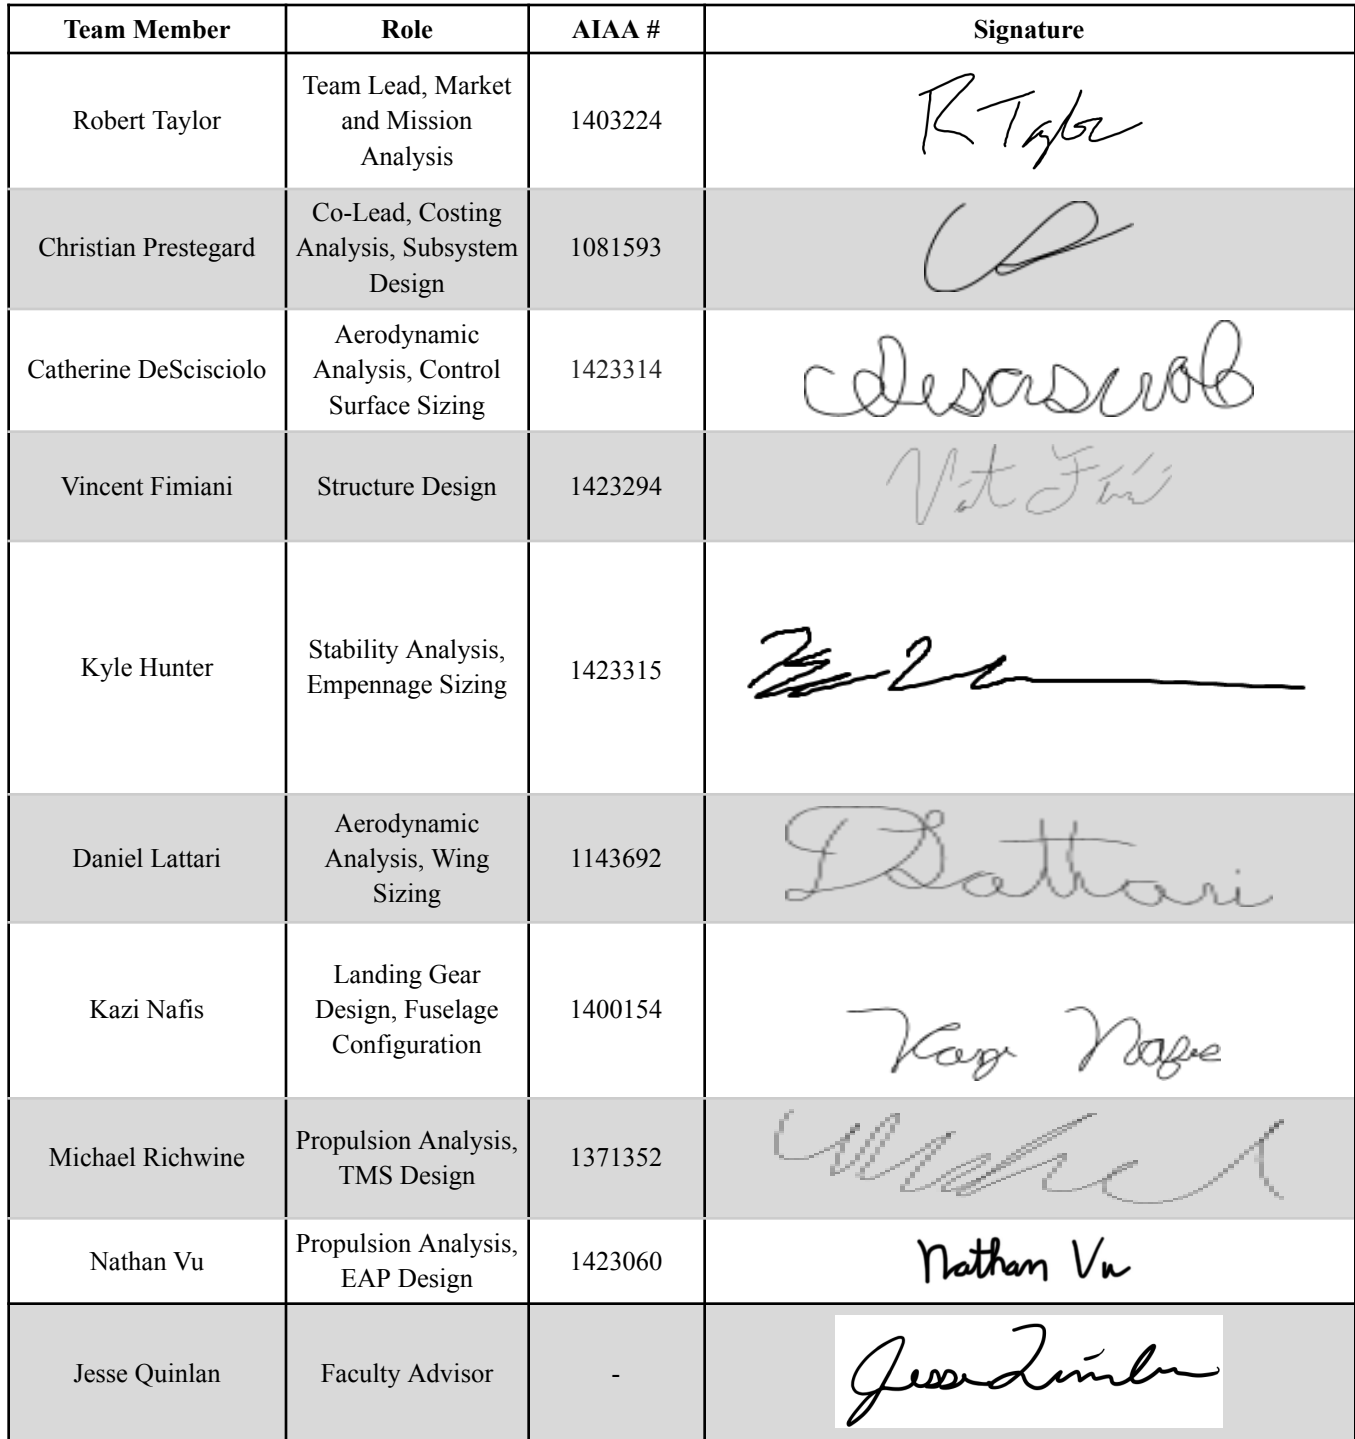 Team Member Role AIAA # Signature
Robert Taylor
Team Lead, Market
and Mission
Analysis
1403224
R Taylor
Christian Prestegard
Co-Lead, Costing
Analysis, Subsystem
Design
1081593
Catherine DeScisciolo
Aerodynamic
Analysis, Control
Surface Sizing
1423314
CDeScisciolo
Vincent Fimiani
Structure Design
1423294
Kyle Hunter
Stability Analysis,
Empennage Sizing
1423315
Daniel Lattari
Aerodynamic
Analysis, Wing
Sizing
1143692
DLattari
Kazi Nafis
Landing Gear
Design, Fuselage
Configuration
1400154
Kazi Nafis
Michael Richwine
Propulsion Analysis,
TMS Design
1371352
Nathan Vu
Propulsion Analysis,
EAP Design
1423060
Nathan Vu
Jesse Quinlan
Faculty Advisor
-
Jesse Quinlan